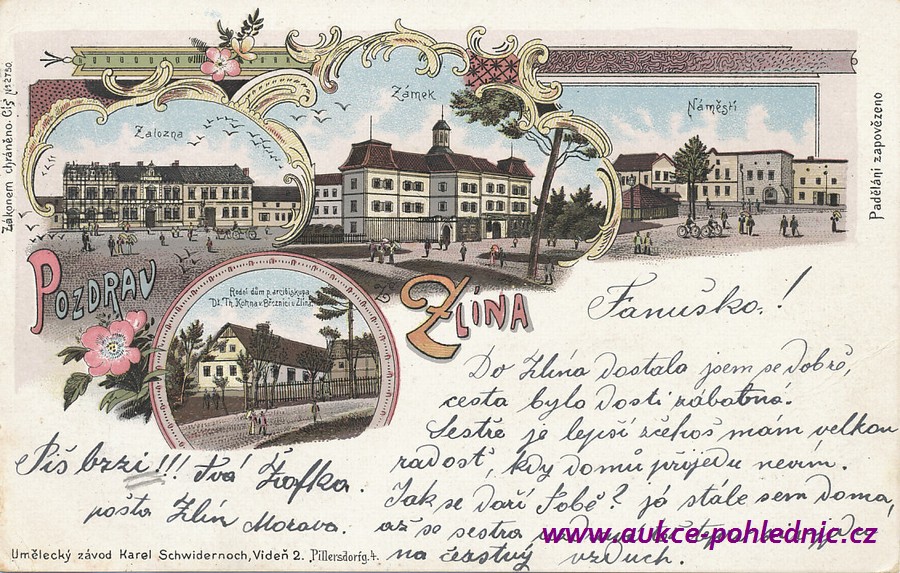 Zákonem chráněno Čís. 2750.
Padělání zapovězeno
Založna
Zámek
Náměstí
Pozdrav
ze
Zlína
Rodní dům p. arcibiskupa
Dr. Th. Kohna v Březnici u Zlína
Fanuško!
Do Zlína dostala jsem se dobře,
cesta byla dosti zábavná.
Sestře je lepší z čehož mám velkou
radost, kdy domů přijedu nevím.
Jak se daří Tobě? já stále sem doma,
až se sestra
na čerstvý vzduch.
Piš brzi!!! Tvá Žofka.
pošta Zlín Morava.
www.aukce-pohlednic.cz
Umělecký závod Karel Schwidernoch, Videň 2. Pillersdorfg. 4.